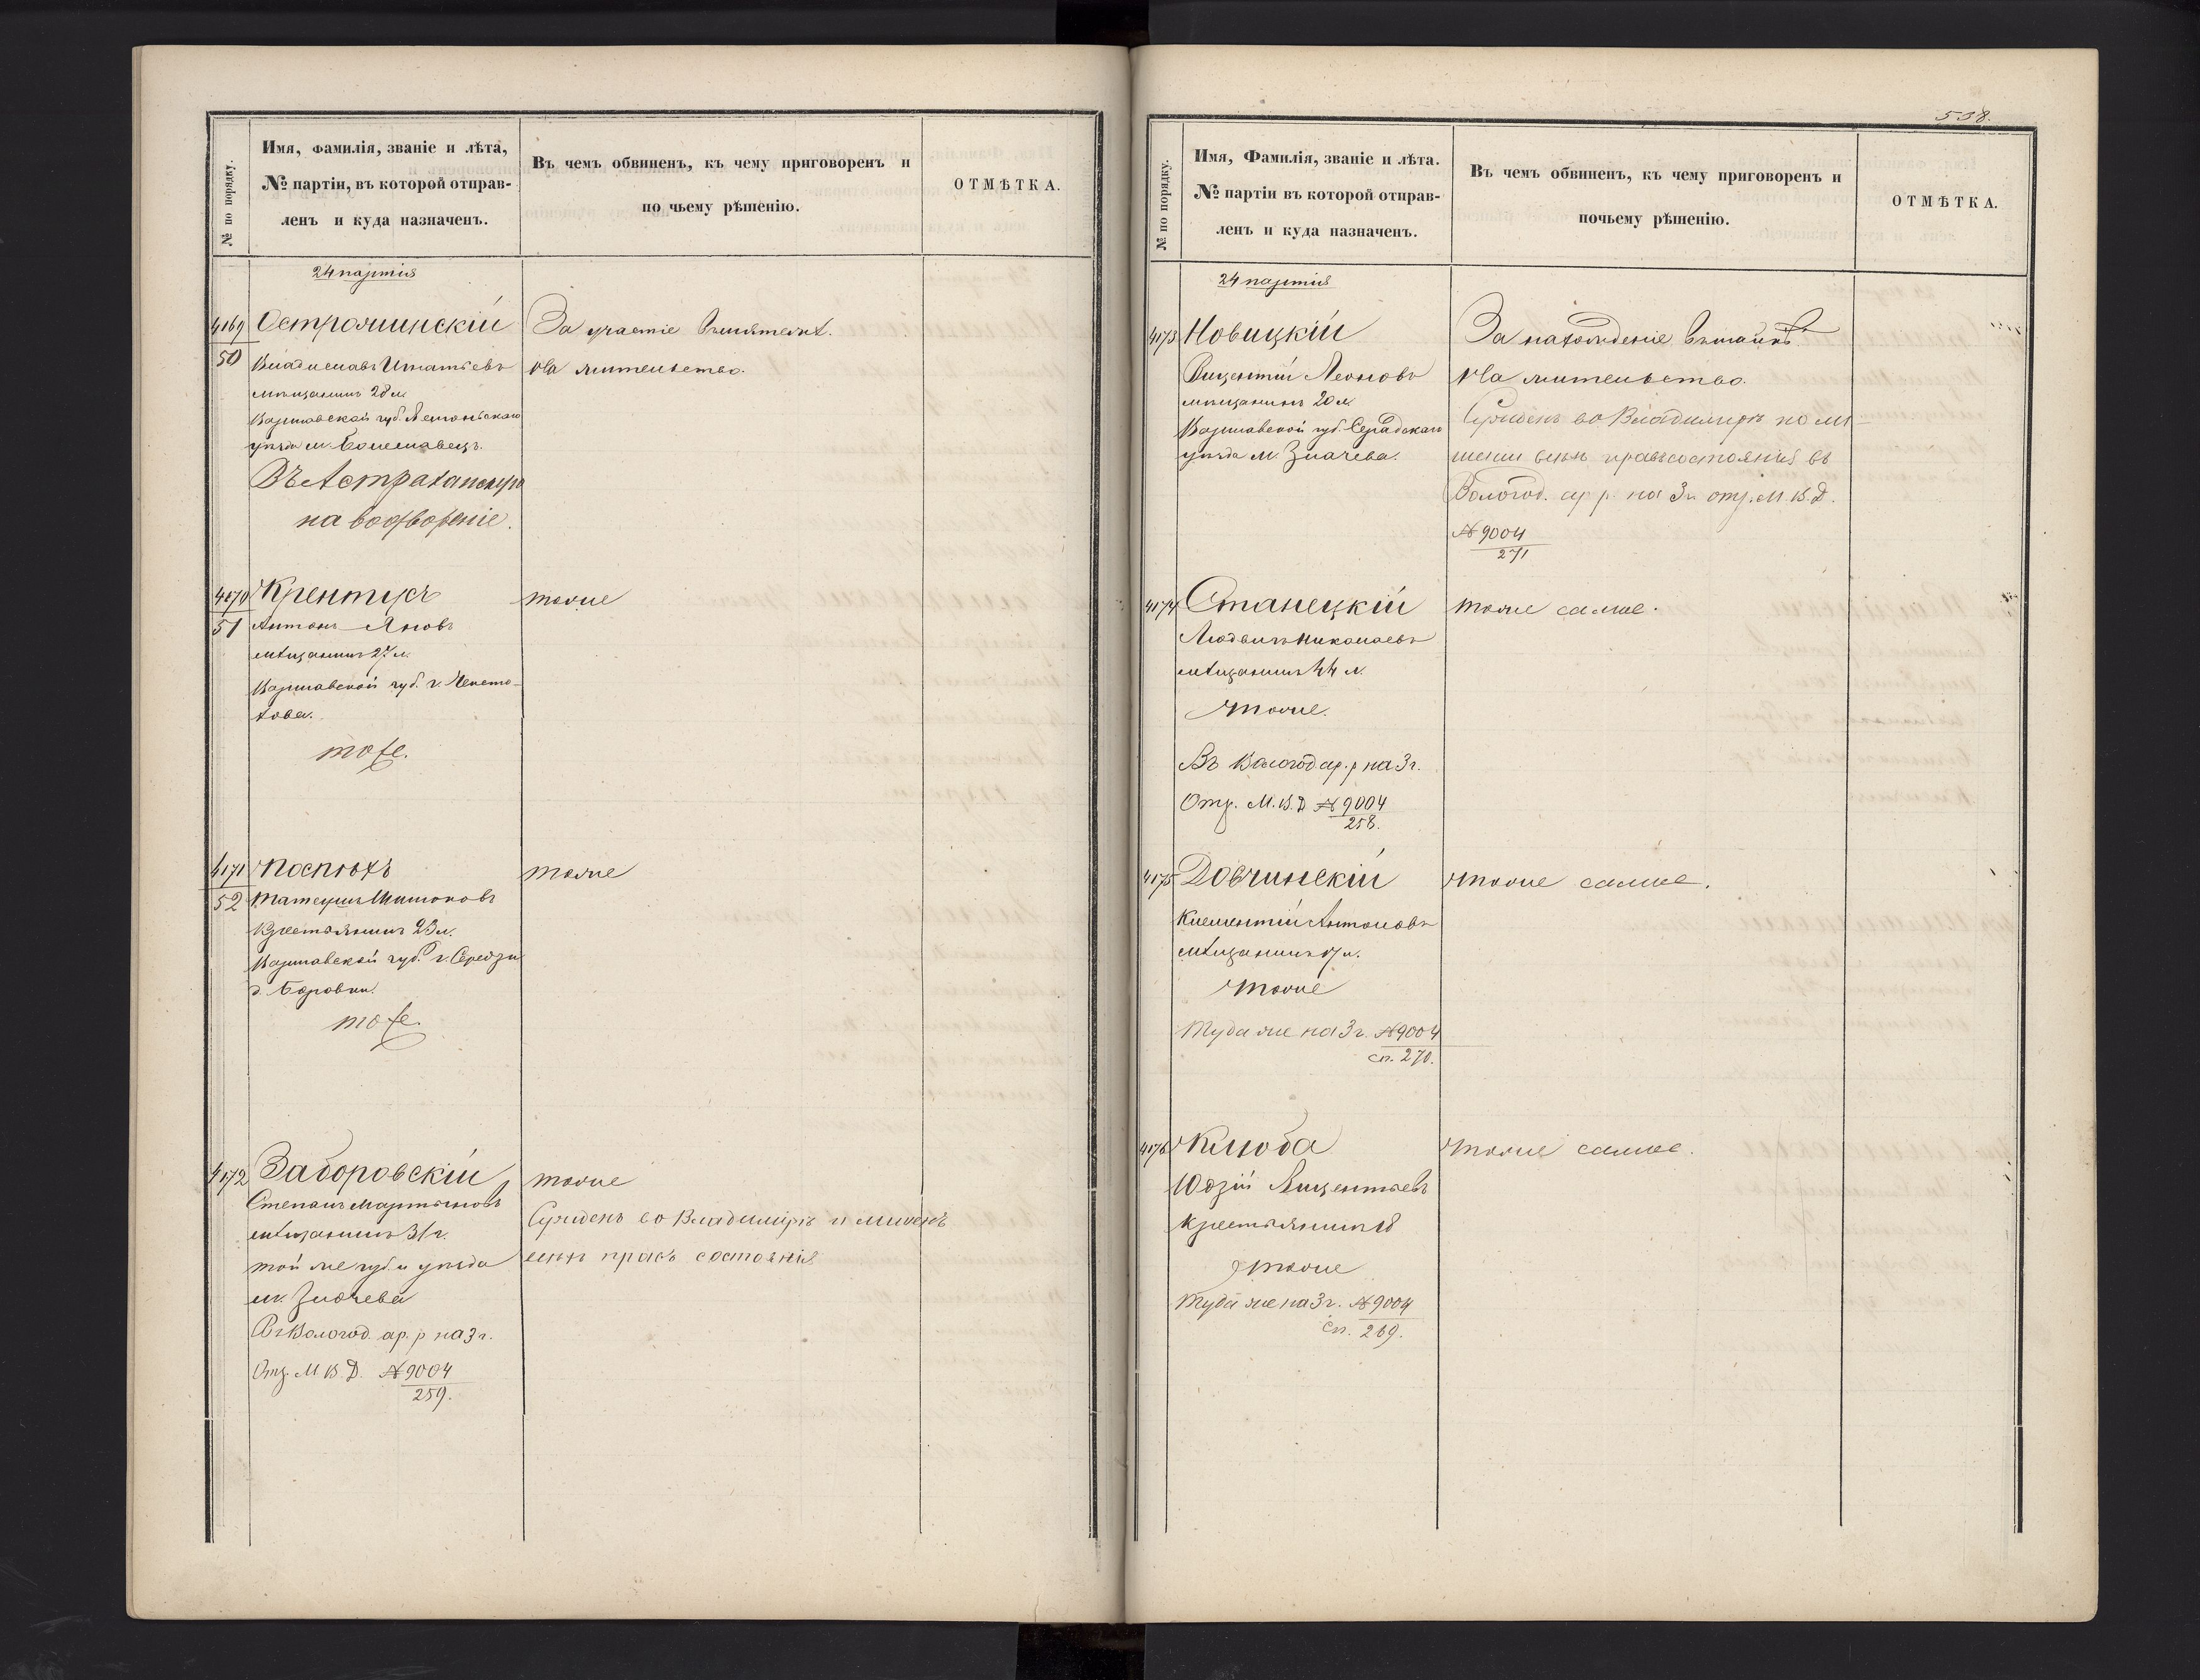 № по порядку.
Имя, Фамилія, званіе и лѣта,
№ партіи, въ которой отправ-
ленъ и куда назначенъ.
Въ чемъ обвиненъ, къ чему приговоренъ и
по чьему рѣшенію.
ОТМѢТКА.
24 партія
4169
50
Остроминскій
Владиславъ Игнатьевъ
мѣщанинъ 28 л.
Варшавской губ.
уѣзда м. Болеславецъ.
Въ Астраханскую
на водвореніе.
За участіе въ мятежѣ.
На жительство.
4170
51
Крентусъ
Антонъ Яновъ
мѣщанинъ 27 л.
Варшавской губ. г. Ченсто-
хова.
тоже.
тоже
4171
52
Поспѣхъ
Матеушъ Шимоновъ
Крестьянинъ 23 л.
Варшавской губ.
д. Боровки.
тоже.
тоже
4172
Заборовскій
Степанъ Мартыновъ
мѣщанинъ 31 г.
той же губ. и уѣзда
м. Злочева
Въ Вологод. ар. р на 3 г.
Отр. М. В. Д. № 9004
259.
тоже
Сужденъ во Владимірѣ и лишенъ
всѣхъ правъ состоянія
538.
№ по порядку.
Имя, Фамилія, званіе и лѣта.
№ партіи въ которой отправ-
ленъ и куда назначенъ.
Въ чемъ обвиненъ, къ чему приговоренъ и
почьему рѣшенію.
ОТМѢТКА.
24 партія
4173
Новицкій
Вицентій Леоновъ
мѣщанинъ 20 л.
Варшавской губ. Серадскаго
уѣзда м. Злочева.
За нахожденіе въ шайкѣ
На жительство.
Сужденъ во Владимирѣ по ли-
шеніи всѣхъ правъ состоянія въ
Вологод. ар р. на 3 г. отр. М. В. Д.
№ 9004
271
4174
Станецкій
Людвигъ Николаевъ
мѣщанинъ 44 л.
тоже.
Въ Вологод ар. р на 3 г.
Отр. М. В. Д № 9004
258.
тоже самое.
4175
Довчинскій
Клементій Антоновъ
мѣщанинъ 17 л.
тоже
Туда же на 3 г. № 9004
сп. 270.
тоже самое.
4176
Клюба
Юзій Вицентьевъ
Крестьянинъ 18
тоже
Туда же на 3 г. № 9004
сп. 269.
тоже самое.